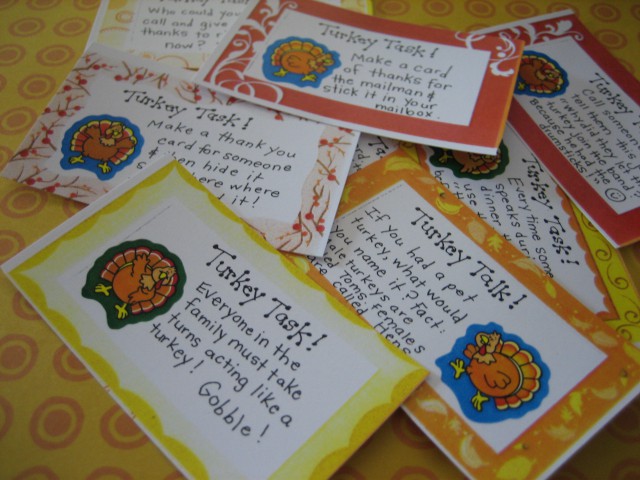 Who could you
call and give
thanks to
now?
Turkey Task!
Make a card
of thanks for
the mailman &
stick it in your
mailbox.
Turkey Task!
Make a thank you
card for someone
then hide it
where
it!
Turkey
Call someone
Tell them this
Why did they let the
turkey join the band
Because he had the
drumsticks
Task!
Every time some
speaks
dinner
use
Turkey Talk!
If you had a pet
turkey, what would
you name it? Fact:
male turkeys are
Toms, females
called Hens
Turkey Task!
Everyone in the
family must take
turns acting like a
turkey!
Gobble!